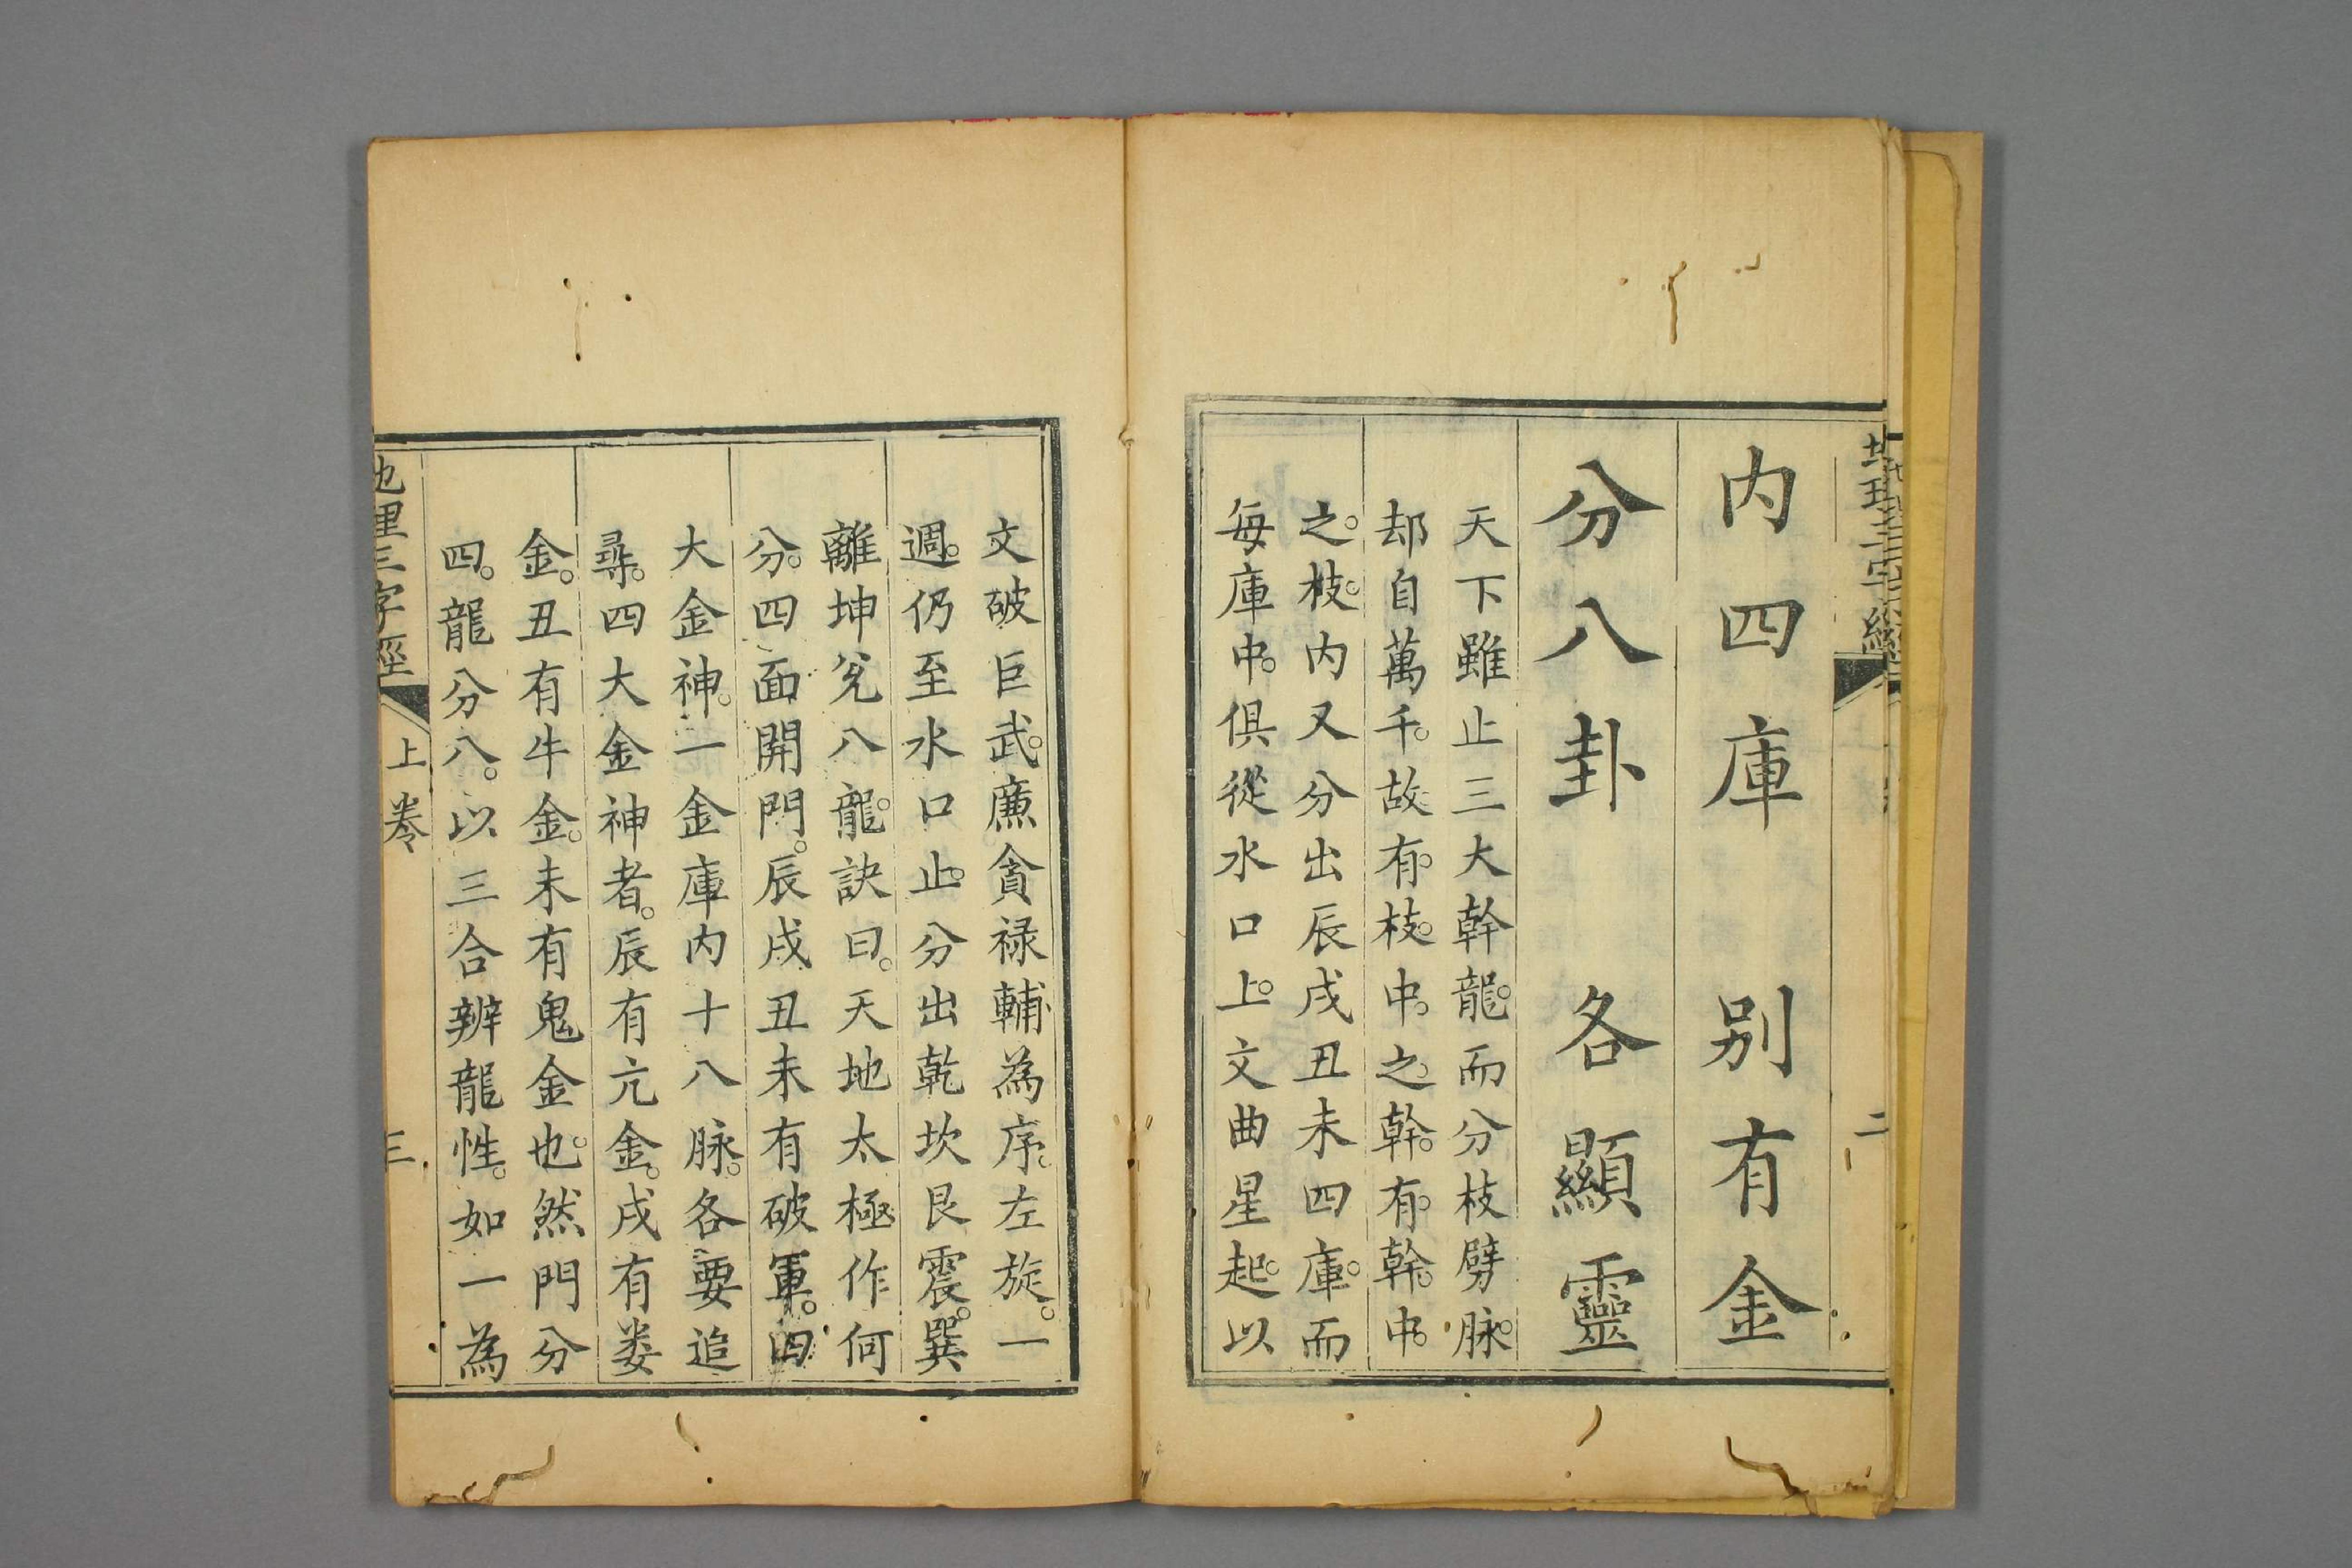 地理三字經
二
内四庫 别有金
分八卦 各顯靈
天下雖止三大幹龍。而分枝劈脉。
却自萬千。故有。枝。中。之。幹。有。幹。中。
之。枝。内又分出辰戌丑未四庫。而
每庫中。俱從水口上。文曲星起。以
文破巨武。廉貪禄輔為序。左旋。一
週。仍至水口止。分出乾坎艮震。巽
離坤兊八龍。訣曰。天地太極作何
分。四面開門。辰戌丑未有破軍。四
大金神。一金庫内十八脉。各要追
尋。四大金神者。辰有亢金。戌有婁
金。丑有牛金。未有鬼金也。然門分
四。龍分八。以三合辨龍性。如一為
地理三字經
上卷
三